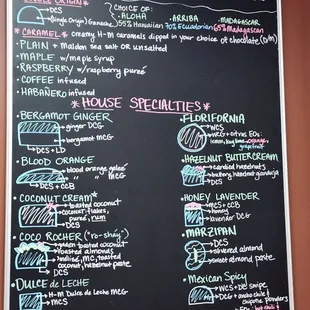 SINGLE ORIGIN*
DCS
(Single Origin) Ganache
CHOICE OF:
·ALOHA ·ARRIBA ·MADAGASCAR
55% Hawaiian 70% Ecuadorian 65% Madagascan
*CARAMEL* creamy H-M caramels dipped in your choice of chocolate (D/M)
·PLAIN + Maldon sea salt OR unsalted
·MAPLE w/maple syrup
·RASPBERRY w/raspberry pureé
·COFFEE infused
·HABAÑERO infused
*HOUSE SPECIALTIES*
·BERGAMOT GINGER
ginger DCG
bergamot MCG
DCS + LD
·BLOOD ORANGE
blood orange geleé
MCG
DCS + CCB
·COCONUT CREAM*
toasted coconut
coconut flakes,
pureé, rum
DCS
·COCO ROCHER (*ro-shay)
toasted coconut
toasted almonds
MC, toasted
coconut, hazelnut paste
MCS
·DULCE DE LECHE
H-M Dulce de Leche MCG
MCS
·FLORIFORNIA
WCS
WCG + citrus EOs:
lemon, orange,
grapefruit
·HAZELNUT BUTTERCREAM
candied hazelnuts
buttery, hazelnut gianduja
DCS
·HONEY LAVENDER
MCS + CCB
honey
lavender DCG
·MARZIPAN
DCS
slivered almond
sweet almond paste
·Mexican Spicy
WCS + DC swipe
DCG + ancho chile &
chipotle powders
EOs: